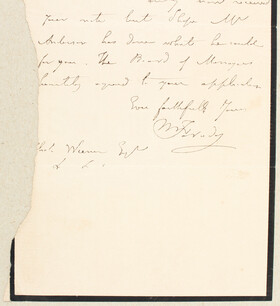 received
your note but I hope Mr
Anderson has done what he could
for you. The Board of Managers
agreed to your application
Ever faithfully Yours
W Brady
Weener Esqr